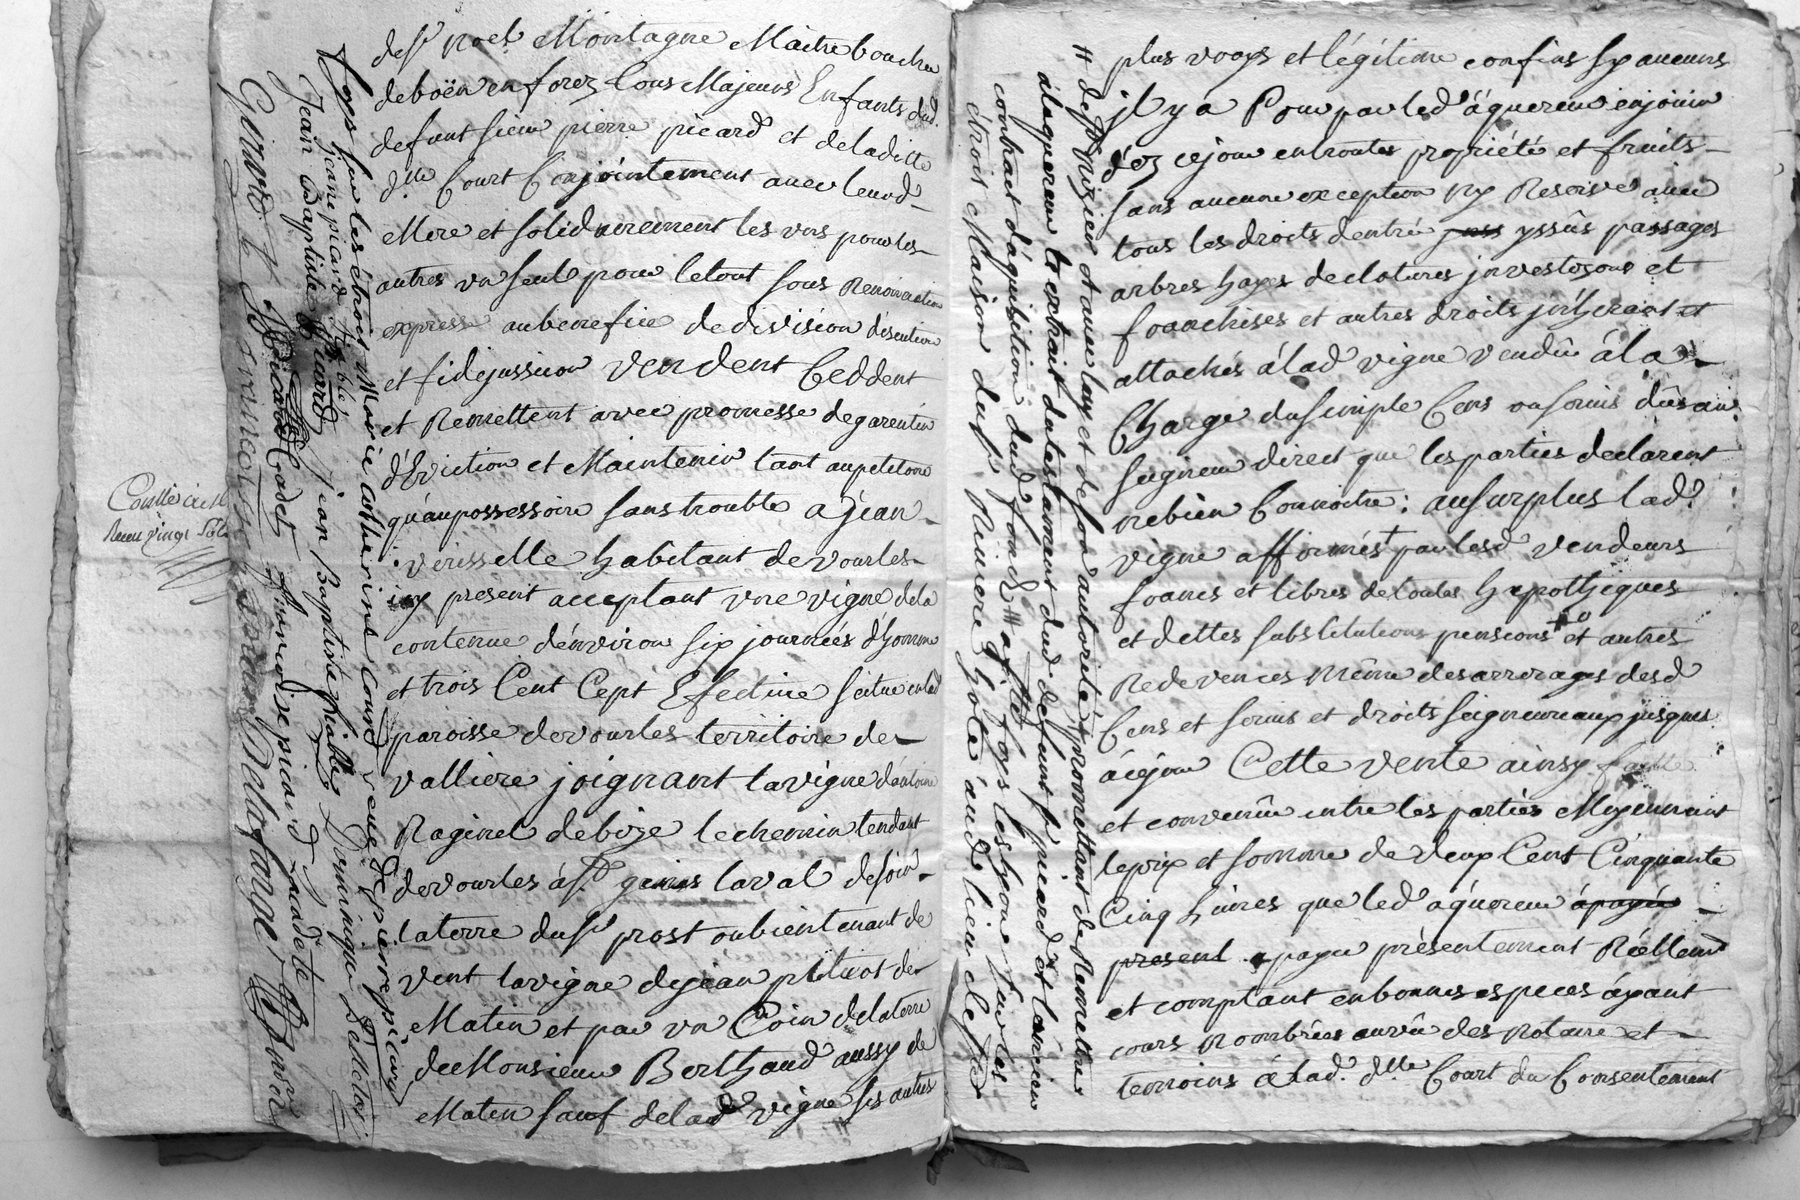 desr. noel Montagne Maitre boucher
deboën en forez tous Majeurs Enfants dud.
defunt sieur pierre picard et deladitte
dlle Court Conjointement avec leurd
Mere et solidairement les uns pour les
autres un seul pour letout sous Renonciation
expresse aubenefice de division discution
et fidejussion Vendent Ceddent
et Remettent avec promesse degarentir
d'Eviction et Maintenir tant aupetitoire
qu'aupossessoire sans trouble a Jean
verisselle habitant devourles
icy present acceptant une vigne dela
contenue d'environ six journées d'homme
et trois Cent Cept Effective scitue en lad
paroisse devourles territoire de
valliere joignant lavigne d'antoine
Raginel deboze lechemin tendant
devourles á st. genis laval desoir
laterre dusr prost oubientenant de
vent lavigne dejean pitiot de
Matin et par un Coin delaterre
de Monsieur Berthaud aussy de
Matin sauf delad vigne ses autres
Jean Baptiste fiable Dominique
marie Catherine Court veuve de pierre picard
jeanne picard fiable
Jean Baptiste Picard
Picard Cadet francoise picard Cadete
Girard Delafarge
Conllé
Receu vingt sols
plus vrays et légitime confins sy aucuns
il y a Pour par led áquereur enjouir
déz cejour entoutes propriété et fruits
sans aucune exception ny Reserve avec
tous les droits dentrée yssûs passages
arbres hayes declotures investisons et
franchises et autres droits inhérant et
attachés álad vigne vendüe á la
Charge dusimple Cens ou servis dûs au
seigneur direct que les parties declarent
nebien Connoitre: ausurplus lad.
vigne affirmés + par lesd vendeurs
francs et libres detoutes hypothèques
et dettes substitutions pensions et autres
Redevences Même desarrerages desd
Cens et servis et droits seigneureaux jusques
ácejour Cette vente ainsy faitte
et convenüe entre les parties Moyennant
leprix et somme de deux Cent Cinquante
Cinq Livres que led aquereur ápayée
present apayée présentement Réellement
et comptant enbonnes especes áyant
cours Nombrées auvû des Notaire et
temoins á lad. dlle Court du Consentement
álaquereur lextrait dutestament dud defunt sr picard et lancien
contract d'aquisition dud fond
étroit Maison dusr Riviere hote aud lieu